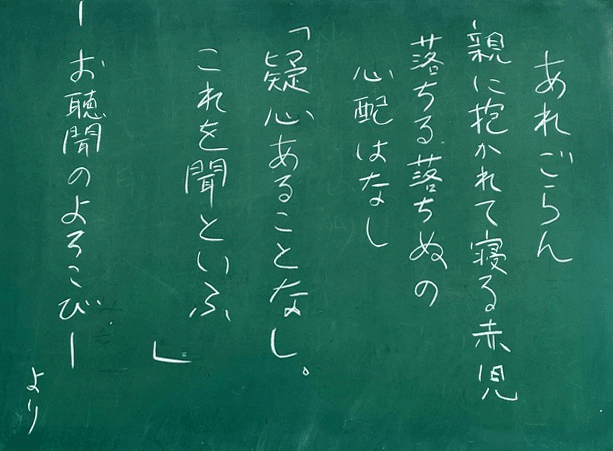 あれごらん
親に抱かれて寝る赤児
落ちる落ちぬの
心配はなし
「疑心あることなし。
これを聞といふ」
ーお聴聞のよろこびー
より